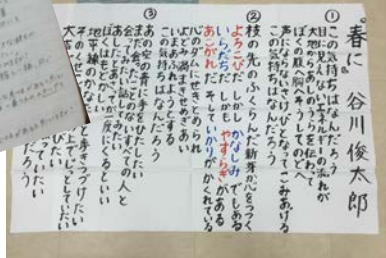 『春に』 谷川俊太郎
①
この気持ちはなんだろう
目に見えないエネルギーの流れが
大地から足の裏を伝わって
ぼくの腹へ胸へそうしてのどへ
声にならないさけびとなってこみあげる
この気持ちはなんだろう
②
枝の先のふくらんだ新芽が心をつつく
よろこびだ しかし かなしみでもある
いらだちだ しかも やすらぎがある
あこがれだ そしていかりがかくれている
心のダムにせきとめられ
よどみ渦まきせめぎあい
いまあふれようとする
この気持ちはなんだろう
③
あの空の青に手をひたしたい
まだ会ったことのないすべての人と
会ってみたい話してみたい
あしたとあさってが一度にくるといい
ぼくはもどかしい
地平線のかなたへと歩きつづけたい